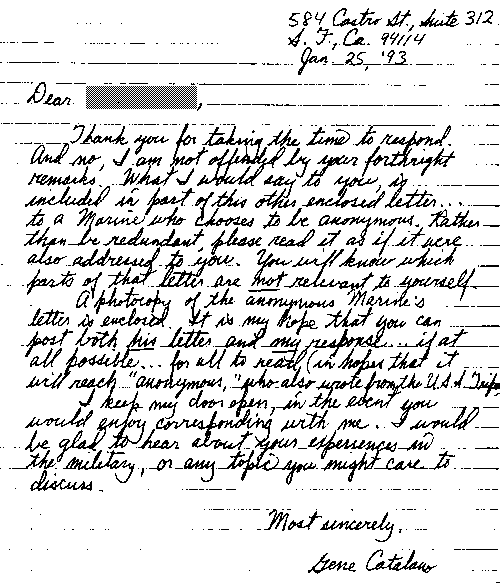 584 Castro St., Suite 312
S. F., Ca. 94114
Jan. 25, '93
Dear ,
Thank you for taking the time to respond.
And no, I am not offended by your forthright
remarks. What I would say to you, is
included in part of this other enclosed letter...
to a Marine who chooses to be anonymous. Rather
than be redundant, please read it as if it were
also addressed to you. You will know which
parts of that letter are not relevant to yourself.
A photocopy of the anonymous Marine's
letter is enclosed. It is my hope that you can
post both his letter and my response... if at
all possible... for all to read, (in hopes that it
will reach "anonymous," who also wrote from the U.S.S. Tripo
I keep my door open, in the event you
would enjoy corresponding with me. I would
be glad to hear about your experiences in
the military, or any topic you might care to
discuss.
Most sincerely,
Gene Catalano